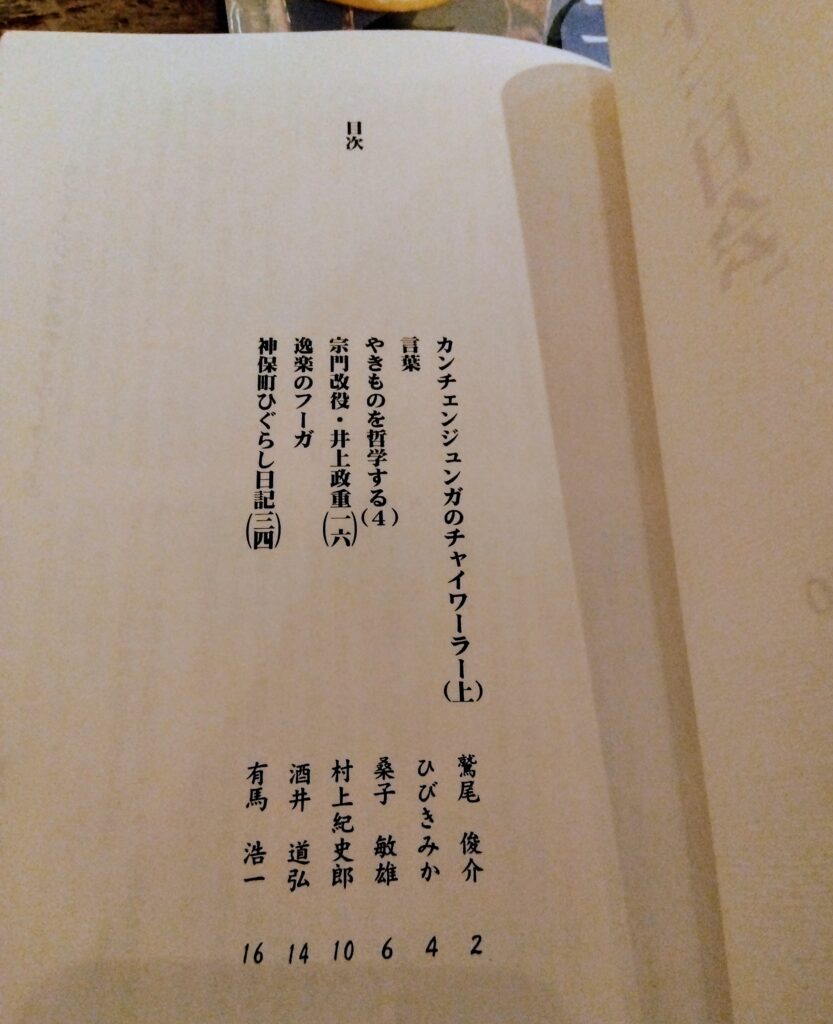 目次
カンチェンジュンガのチャイワーラー(上) 鷲尾 俊介 2
言葉 ひびきみか 4
やきものを哲学する(4) 桑子 敏雄 6
宗門改役・井上政重(一六) 村上紀史郎 10
逸楽のフーガ 酒井 道弘 14
神保町ひぐらし日記(三四) 有馬 浩一 16